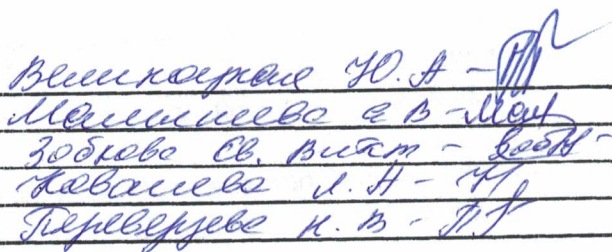 Великацкая Ю. А -
Малышева Е В - Мал
Зобкова Св. Викт - Зоб
Ковалева Л. А - К
Переверзева Н. В - П